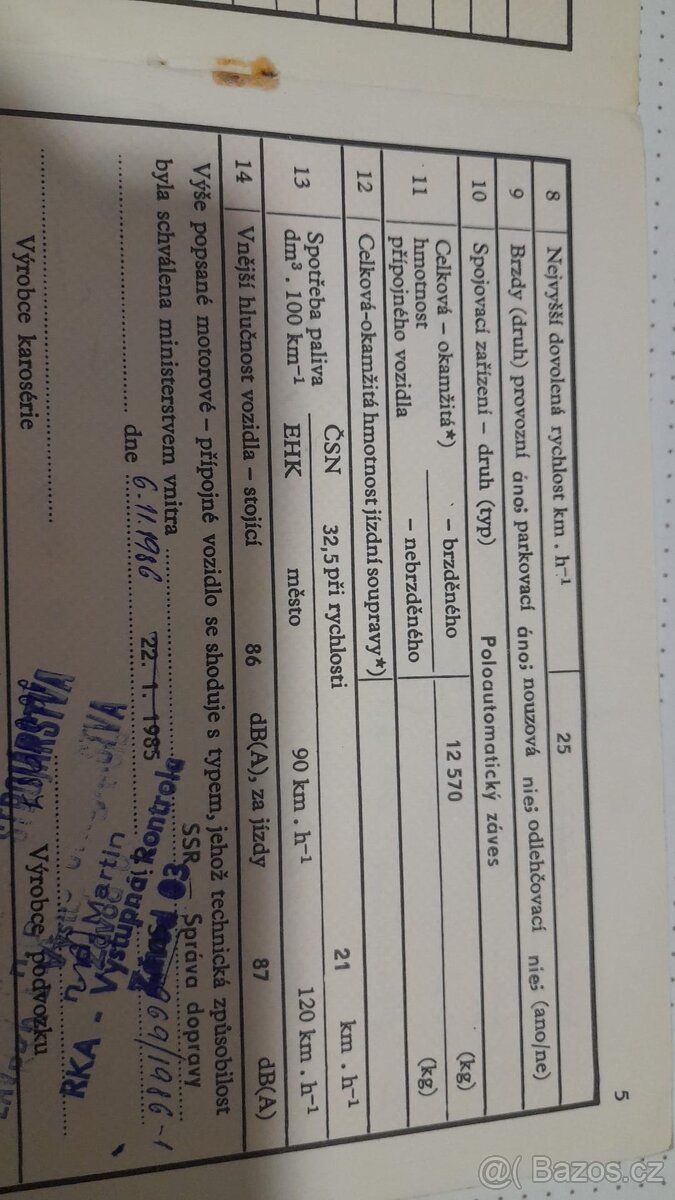 5
8 Nejvyšší dovolená rychlost km . h⁻¹ 25
9 Brzdy (druh) provozní áno; parkovací áno; nouzová nie; odlehčovací nie; (ano/ne)
10 Spojovací zařízení – druh (typ) Poloautomatický záves
11 Celková – okamžitá*) hmotnost přípojného vozidla
– brzděného 12 570 (kg)
– nebrzděného (kg)
12 Celková-okamžitá hmotnost jízdní soupravy*)
13 Spotřeba paliva dm³ . 100 km⁻¹
ČSN 32,5 při rychlosti 21 km . h⁻¹
EHK město 90 km . h⁻¹ 120 km . h⁻¹
14 Vnější hlučnost vozidla – stojící 86 dB(A), za jízdy 87 dB(A)
Výše popsané motorové – přípojné vozidlo se shoduje s typem, jehož technická způsobilost
SSR – Správa dopravy
byla schválena ministerstvem vnitra
969/1986-1
dne 6.11.1986 22. 1. 1985
Výstupná kontrola
Martin
RKA -
Výrobce karosérie
Výrobce podvozku
@( Bazos.cz